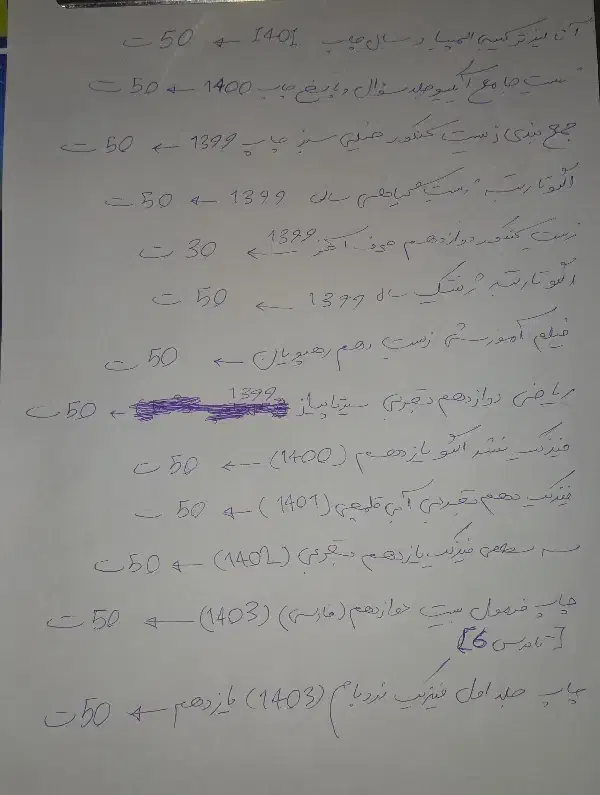 آنالیز ترکیبی المپیاد سال چاپ 1401 ← 50 ت
زیست جامع الگو جلد سؤال و پاسخ چاپ 1400 ← 50 ت
جمع بندی زیست کنکور خیلی سبز چاپ 1399 ← 50 ت
الگو تا رتبه زیست گیاهی سال 1399 ← 50 ت
زیست کنکور دوازدهم حرف آخر 1399 ← 30 ت
الگو تا رتبه ژنتیک سال 1399 ← 50 ت
فیلم آموزشی زیست دهم رهپویان ← 50 ت
ریاضی دوازدهم تجربی سیر تا پیاز 1399 ← 50 ت
فیزیک نشر الگو یازدهم (1400) ← 50 ت
فیزیک دهم تجربی آبی قلمچی (1401) ← 50 ت
سه سطحی فیزیک یازدهم تجربی (1402) ← 50 ت
چاپ فصول بیست دوازدهم (فارسی) (1403) ← 50 ت
[تا درس 6]
چاپ جلد اول فیزیک نردبام (1403) یازدهم ← 50 ت